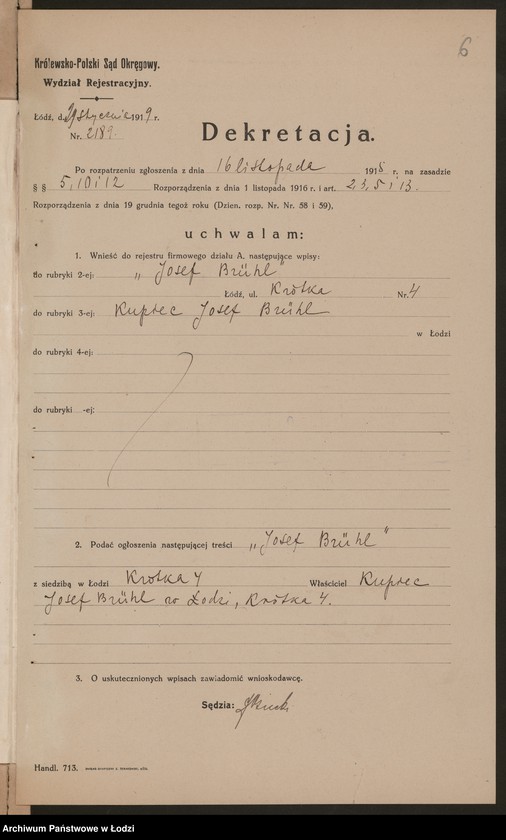 6
Królewsko-Polski Sąd Okręgowy.
Wydział Rejestracyjny.
Łódź, d. 29 stycznia 1919 r.
Nr. 2189
Dekretacja.
Po rozpatrzeniu zgłoszenia z dnia 16 listopada 1918 r. na zasadzie
§ § 5, 10 i 12 Rozporządzenia z dnia 1 listopada 1916 r. i art. 23, 5 i 13.
Rozporządzenia z dnia 19 grudnia tegoż roku (Dzien. rozp. Nr. Nr. 58 i 59),
uchwalam:
1. Wnieść do rejestru firmowego działu A, następujące wpisy:
do rubryki 2-ej: „Josef Brühl"
Łódź, ul. Krótka Nr. 4
do rubryki 3-ej: Kupiec Josef Brühl
w Łodzi
do rubryki 4-ej:
do rubryki -ej:
2. Podać ogłoszenia następującej treści „Josef Brühl"
z siedzibą w Łodzi Krótka 4 Właściciel Kupiec
Josef Brühl w Łodzi, Krótka 4.
3. O uskutecznionych wpisach zawiadomić wnioskodawcę.
Sędzia:
Handl. 713.
Archiwum Państwowe w Łodzi